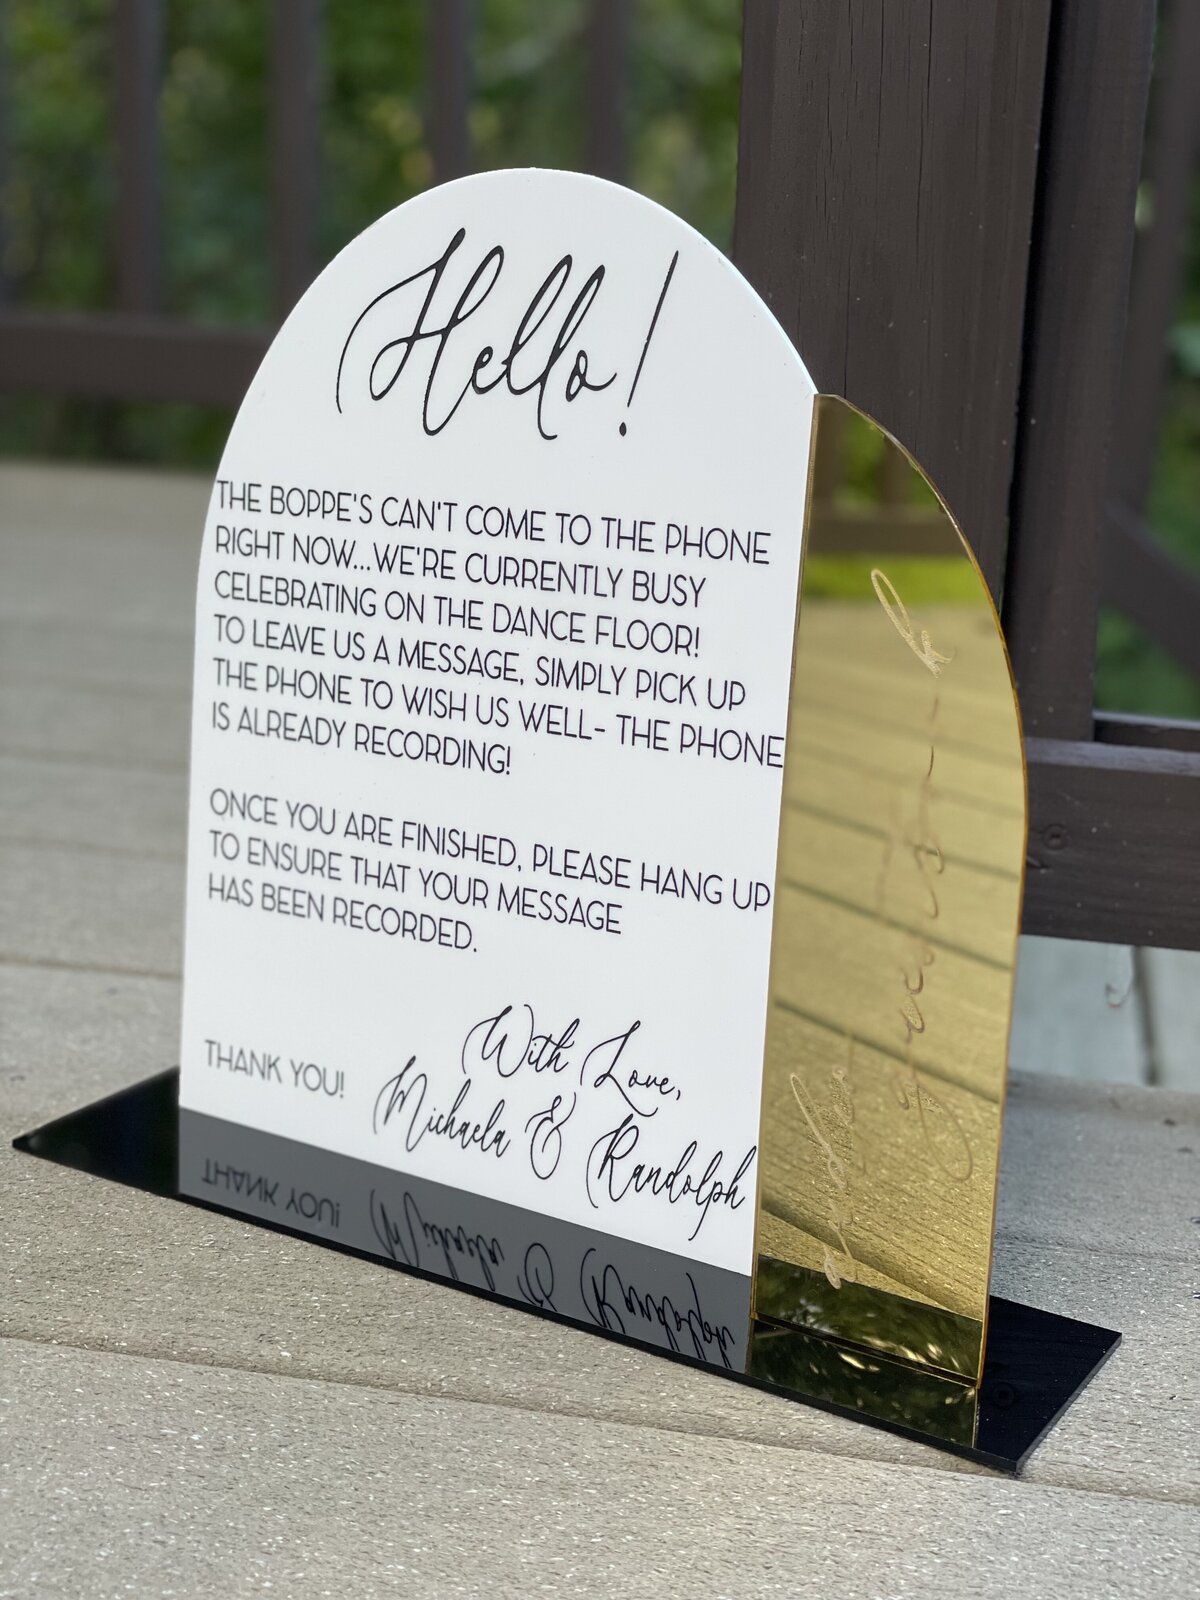 Hello!
THE BOPPE'S CAN'T COME TO THE PHONE
RIGHT NOW...WE'RE CURRENTLY BUSY
CELEBRATING ON THE DANCE FLOOR!
TO LEAVE US A MESSAGE, SIMPLY PICK UP
THE PHONE TO WISH US WELL- THE PHONE
IS ALREADY RECORDING!
ONCE YOU ARE FINISHED, PLEASE HANG UP
TO ENSURE THAT YOUR MESSAGE
HAS BEEN RECORDED.
With Love,
THANK YOU!
Michaela & Randolph